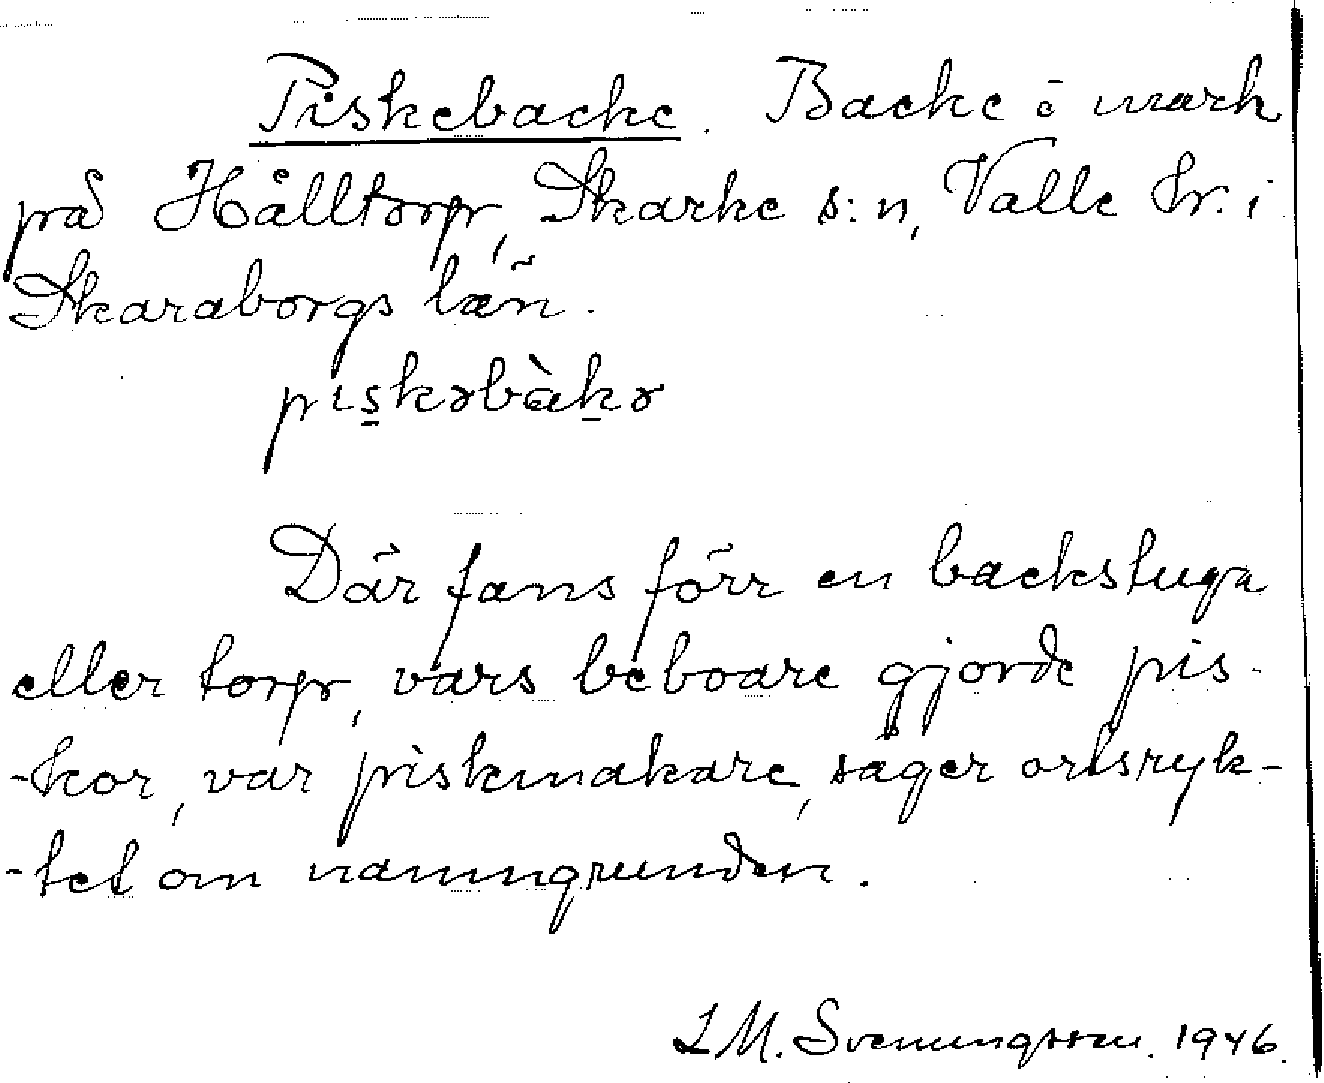 Piskebacke. Backe i mark
på Hålltorp, Skarke s:n, Valle Hr. i
Skaraborgs län.
piskəbàkə
Där fans förr en backstuga
eller torp, vars beboare gjorde pis-
-kor, var piskmakare, säger ortsryk-
-tet om namngrunden.
L M. Svenungsson. 1946.